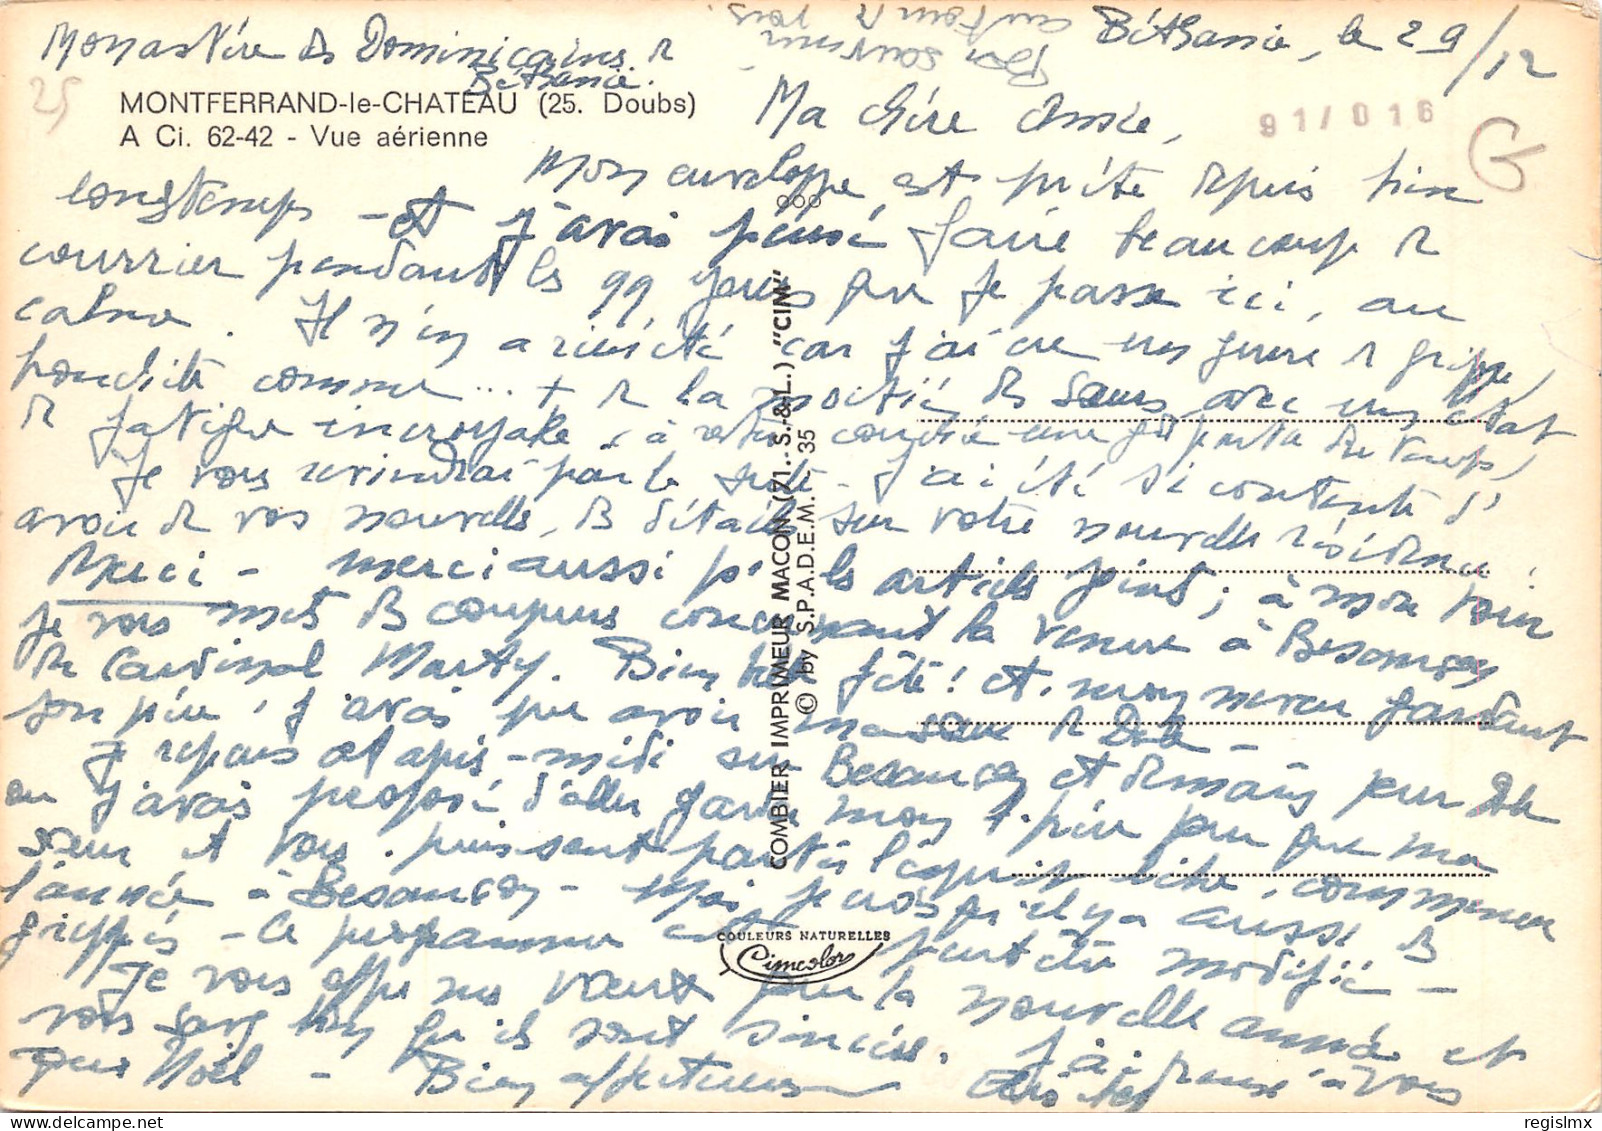 Monastère des Dominicaines de
Béthanie.
MONTFERRAND-le-CHATEAU (25. Doubs)
A Ci. 62-42 - Vue aérienne
25
Bon souvenir
autour de vous.
Béthanie, le 29/12
91/016
Ma chère Annie,
Mon enveloppe est prête depuis bien
longtemps - et j'avais pensé faire beaucoup de
courrier pendant les 99 jours que je passe ici, au
calme. Il n'en a rien été car j'ai eu un genre de grippe,
bronchite comme ... + de la moitié des sœurs avec un état
de fatigue incroyable
Je vous reviendrai par la suite - j'ai été si contente d'
avoir de vos nouvelles, des détails sur votre nouvelle résidence.
Merci - merci aussi pr les articles joints ; à mon tour
je vous mets des coupures concernant la venue à Besançon
du Cardinal Marty. Bien belle fête ! et mon neveu gardant
son père, j'avais pu avoir ma sœur de Dole -
Je repars cet après-midi sur Besançon et demain pour Dole
où j'avais proposé d'aller garder mon père pour que ma
sœur et puissent commencer
l'année à Besançon - Mais je crois qu'il y a aussi des
grippés - le programme peut être modifié -
Je vous offre mes vœux pour la nouvelle année et
vous savez bien qu'ils sont sincères. J'ai pensé à vous
pour Noël - Bien affectueusement
COMBIER IMPRIMEUR MACON (71.-S.-&-L.) "CIM"
© by S.P.A.D.E.M. 35
COULEURS NATURELLES
Cimcolor
regislmx